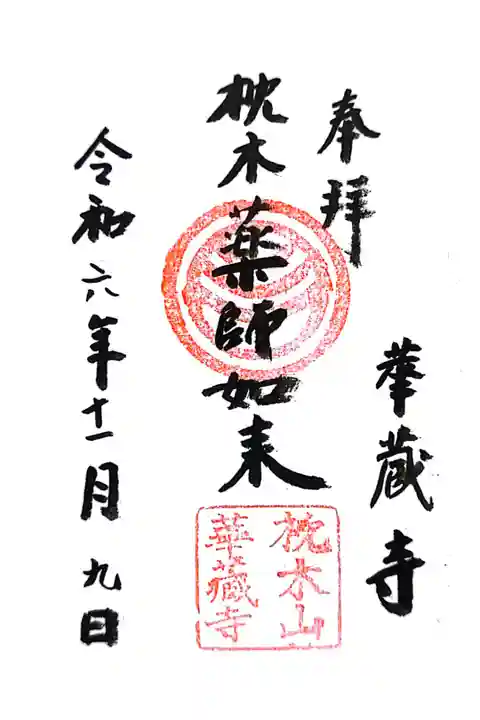 奉拝
華蔵寺
枕木薬師如来
枕木山
華蔵寺
令和六年十一月九日